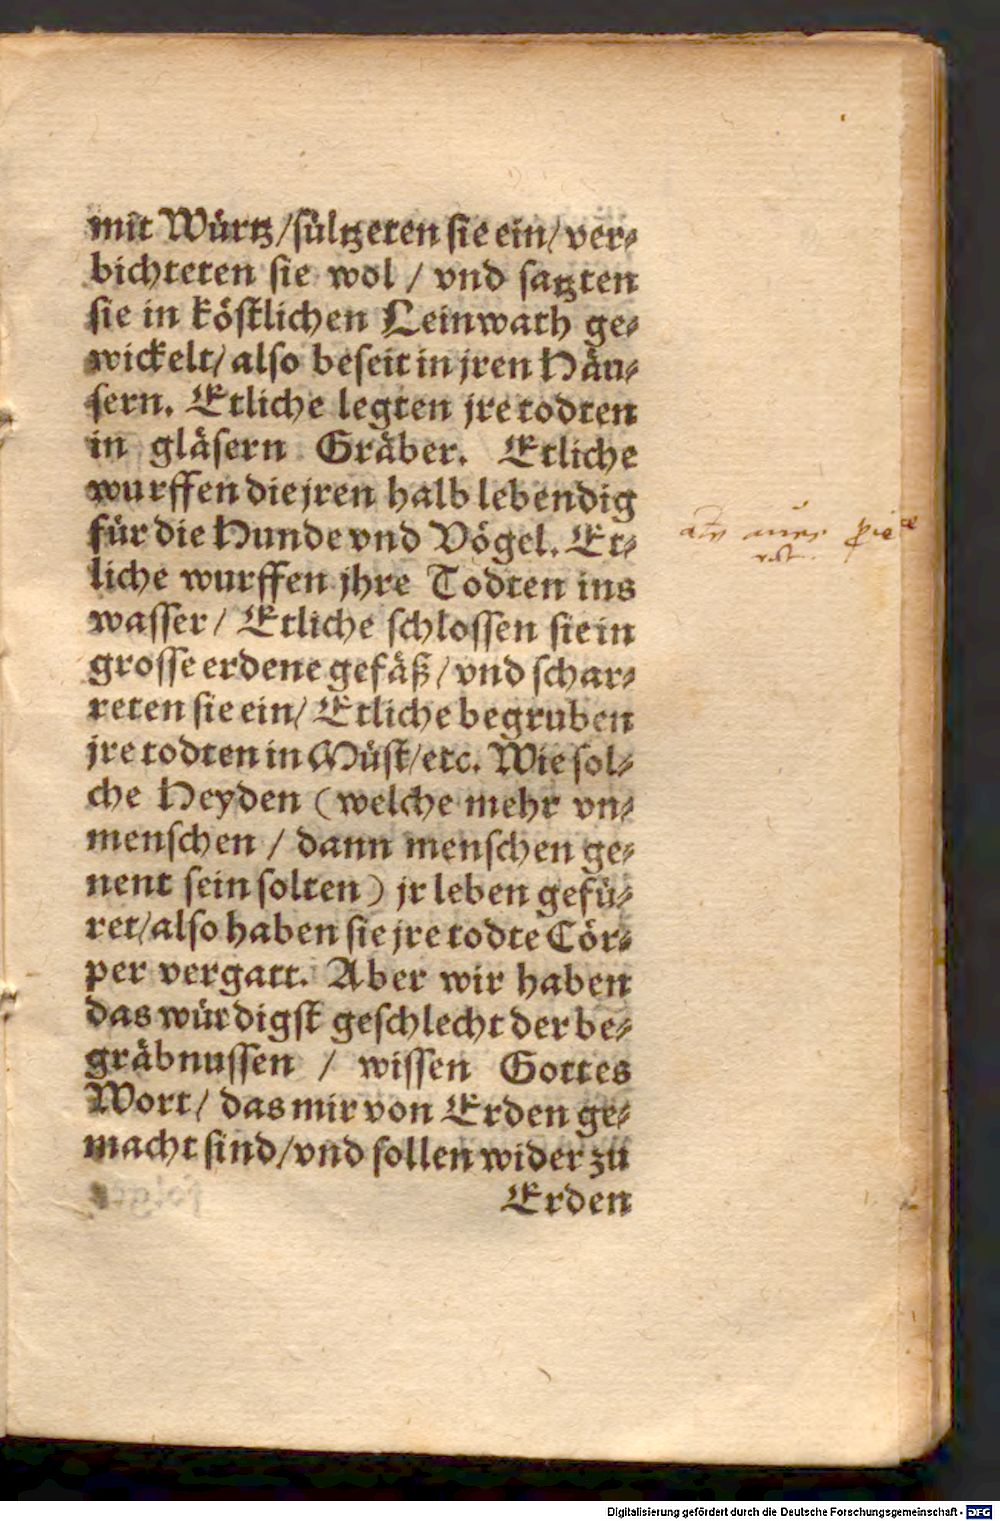 mit Würtz/sültzeten sie ein/ver⸗
bichteten sie wol / vnd satzten
sie in köstlichen Leinwath ge⸗
wickelt/also beseit in jren Häu⸗
sern. Etliche legten jre todten
in gläsern Gräber. Etliche
wurffen die jren halb lebendig
für die Hunde vnd Vögel. Et⸗
liche wurffen jhre Todten ins
wasser/ Etliche schlossen sie in
grosse erdene gefäß/vnd schar⸗
reten sie ein/ Etliche begruben
jre todten in Müst/etc. Wie sol⸗
che Heyden (welche mehr vn⸗
menschen / dann menschen ge⸗
nent sein solten) jr leben gefü⸗
ret/also haben sie jre todte Cör⸗
per vergatt. Aber wir haben
das würdigst geschlecht der be⸗
gräbnussen / wissen Gottes
Wort/ das mir von Erden ge⸗
macht sind/vnd sollen wider zu
Erden
Digitalisierung gefördert durch die Deutsche Forschungsgemeinschaft - DFG